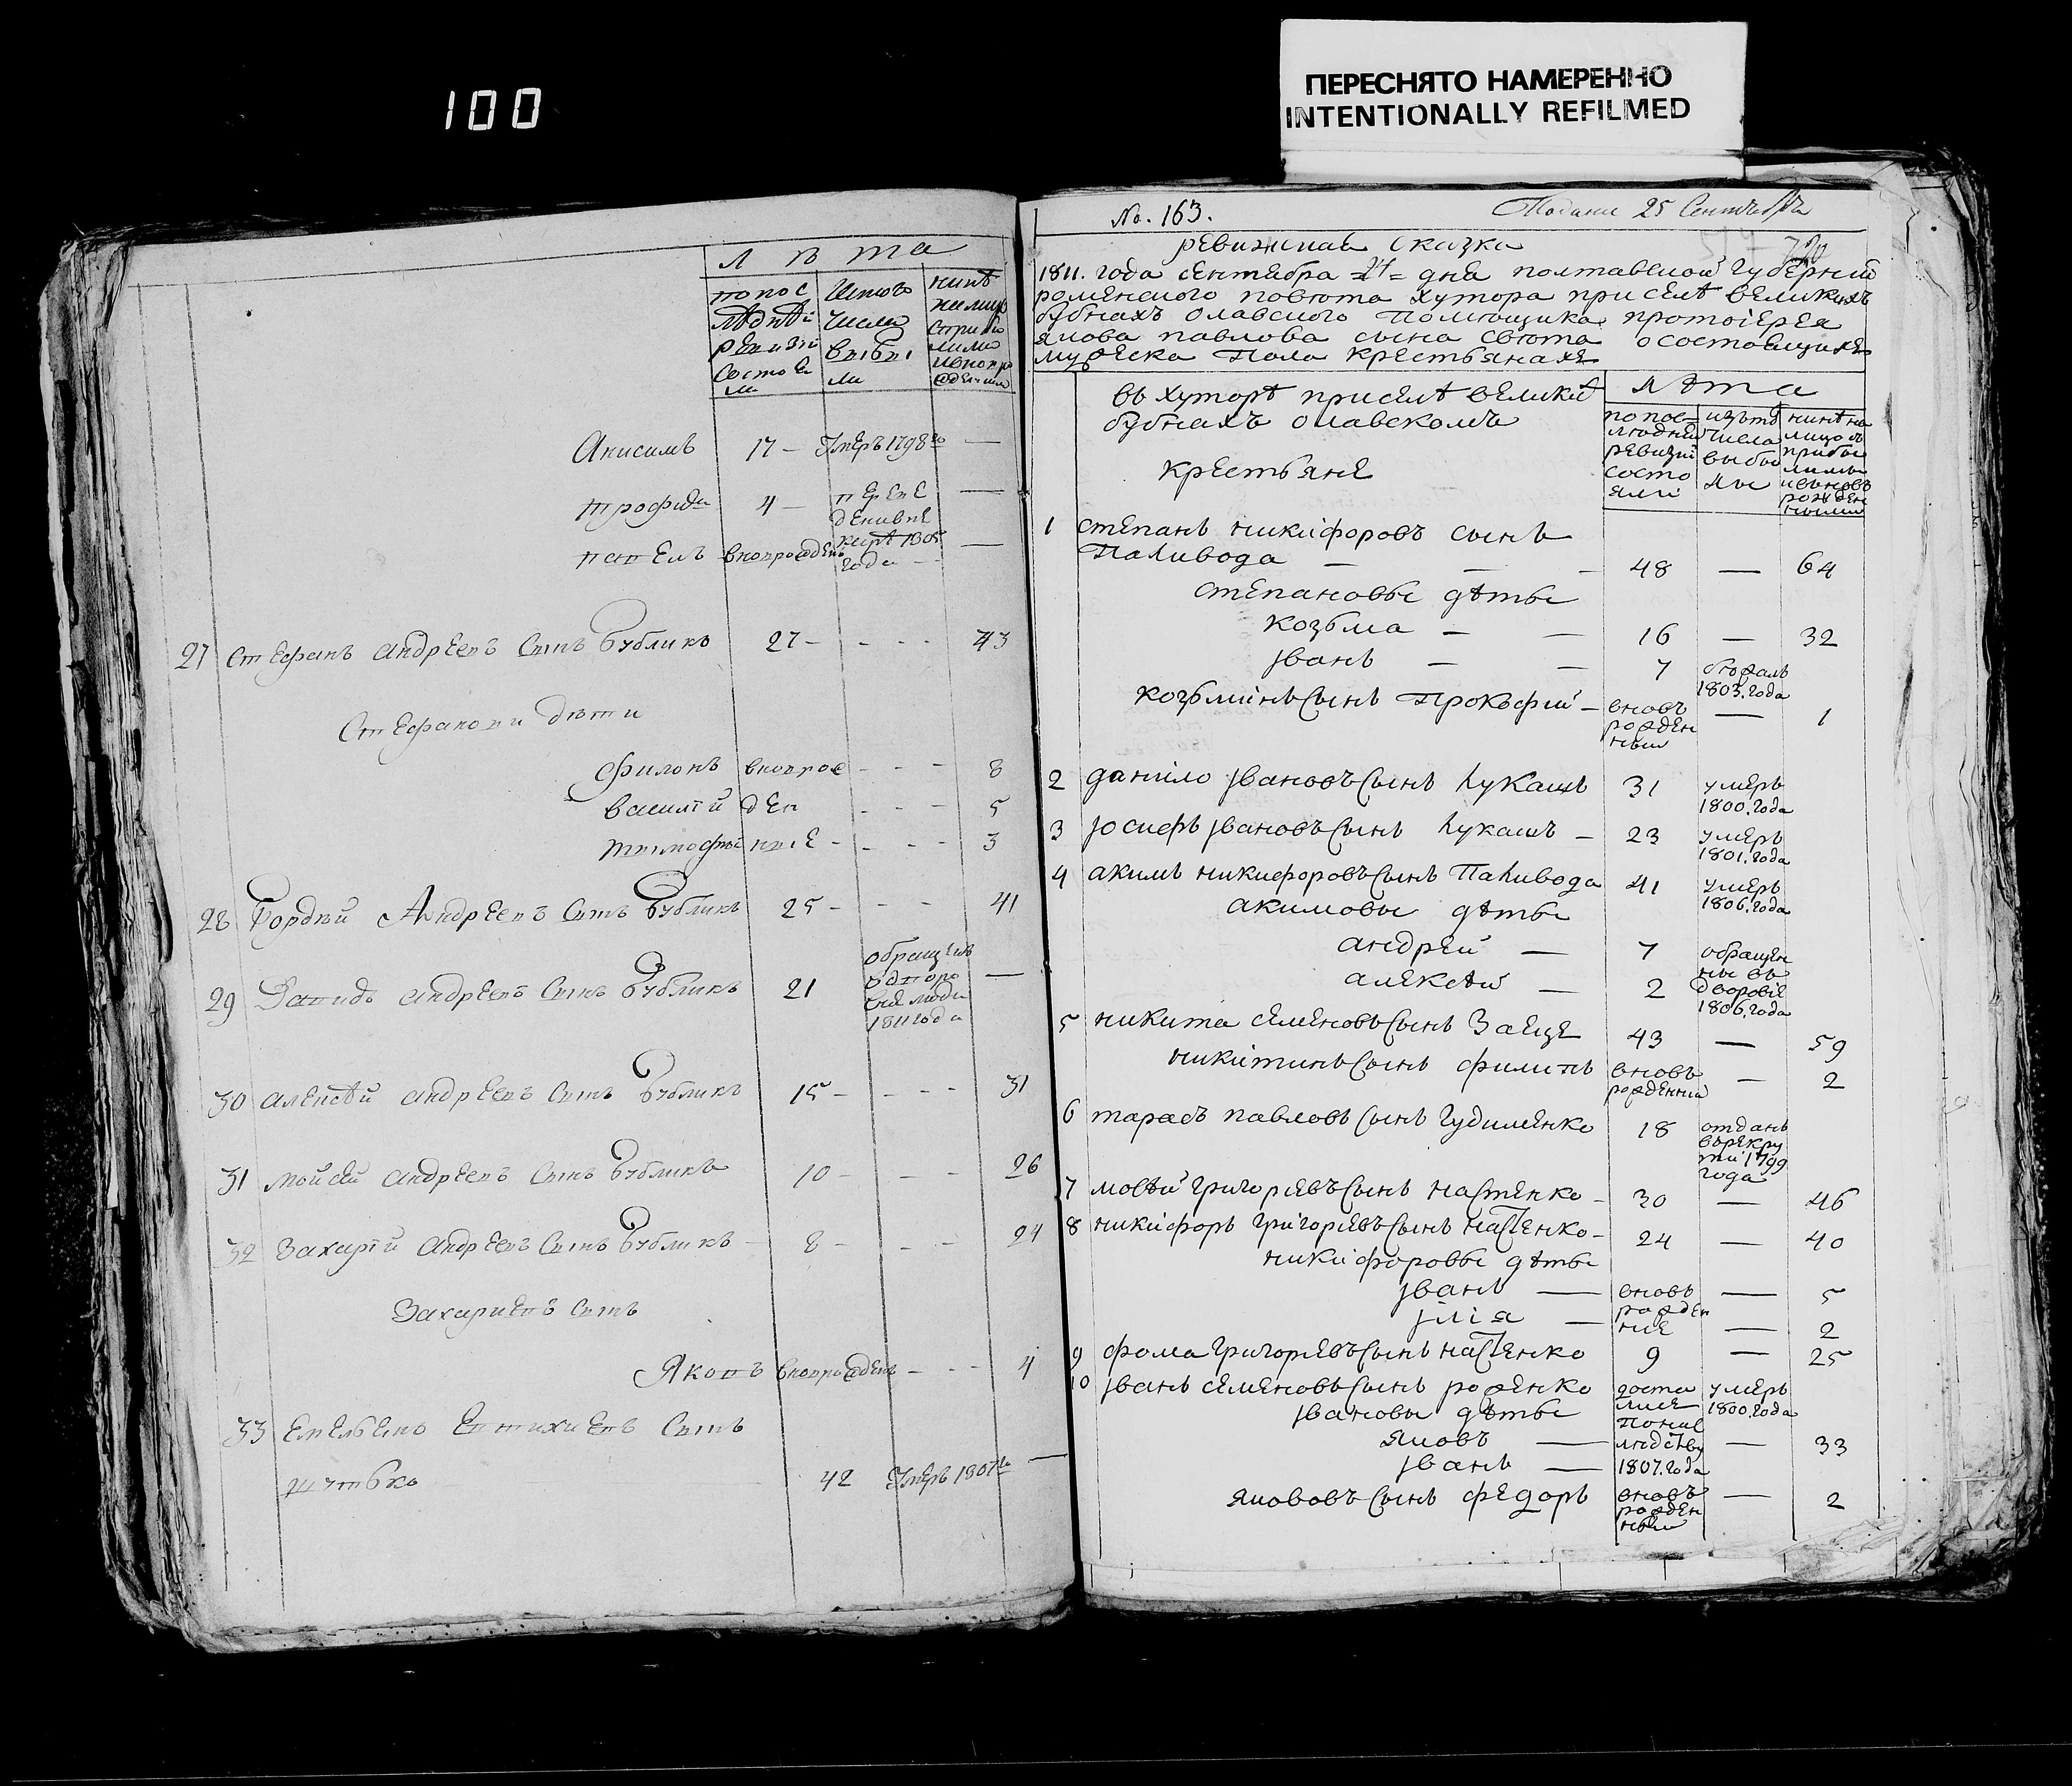 100
ПЕРЕСНЯТО НАМЕРЕННО
INTENTIONALLY REFILMED
Лѣта
по пос
лѣднѣй
ревизіи
состоя
ли
Изтого
числа
выбы
ли
нинѣ
Анисимъ 17 — Умеръ 1798го —
трофим 4 — —
павелъ вновърожден —
27 Стефанъ андреевъ Сынъ бубликъ 27 — - - - 43
Стефанови дѣти
филонъ вновърож - - - 8
василій ден - - - 5
тимофій ние - - - - 3
28 Гордѣй Андреевъ Сынъ бубликъ 25 - - - 41
29 Давидъ андреевъ Сынъ бубликъ 21 обращенъ
вдворо
вие люди
1811 года —
30 алексѣй андреевъ Сынъ бубликъ 15 - - - - 31
31 мойсей андреевъ Сынъ бубликъ 10 - - - 26
32 Захарій андреевъ Сынъ бубликъ - 8 - - - 24
Захариевъ Сынъ
Яковъ вновърожденъ - - - 4
33 Емельянъ Евтихиевъ Сынъ
шутько 42 Умеръ 1807го —
No. 163. Подани 25 Сентября
ревизская сказка
1811. года сентября =21= дня полтавской губерній
роменского повѣта хутора при селѣ великихъ
бубнахъ олавского Помѣщика протоіерея
якова павлова сына свѣта о состоящихъ
мужеска Пола крестьянахъ
въ хуторѣ приселѣ великихъ
бубнахъ олавскомъ
крестьяне
лѣта
по пос-
лѣдней
ревизіи
состо
яли
изъ того
числа
выбы
лы
нинѣ на
лицо съ
прибы
лими
ивновь
рожден
ними
1 степанъ никифоровъ сынъ
Паливода — — — 48 — 64
степановы дѣты
козьма — — 16 — 32
Іванъ — — 7 бѣжалъ
1803. года
козьминъ Сынъ Прокофій — вновъ
рожден
ный — 1
2 данило Івановъ Сынъ лукашъ 31 умеръ
1800. года
3 Іосифъ Івановъ Сынъ лукашъ — 23 умеръ
1801. года
4 акимъ никифоровъ Сынъ Паливода 41 умеръ
1806. года
акимовы дѣты
андрей — 7 обращен
ны въ
алексѣй — 2 дворовіе
1806. года
5 никита семеновъ Сынъ Заецъ 43 — 59
никитинъ Сынъ филипъ вновъ
рожденній — 2
6 тарасъ павловъ Сынъ гудименко 18 отданъ
въ рекру
ти 1799
года
7 мосѣй григоріевъ Сынъ настенко — 30 — 46
8 никифоръ григоріевъ Сынъ настенко — 24 — 40
никифоровы дѣты
Іванъ — вновъ — 5
Ілія — рожден
ние — 2
9 фома григоріевъ Сынъ настенко 9 — 25
10 Іванъ семеновъ Сынъ роженко доста
лись
по нас
лѣдству
1807. года умеръ
1800. года
Івановы дѣты
яковъ — — 33
Іванъ —
якововъ Сынъ федоръ вновъ
рожден
ный — 2